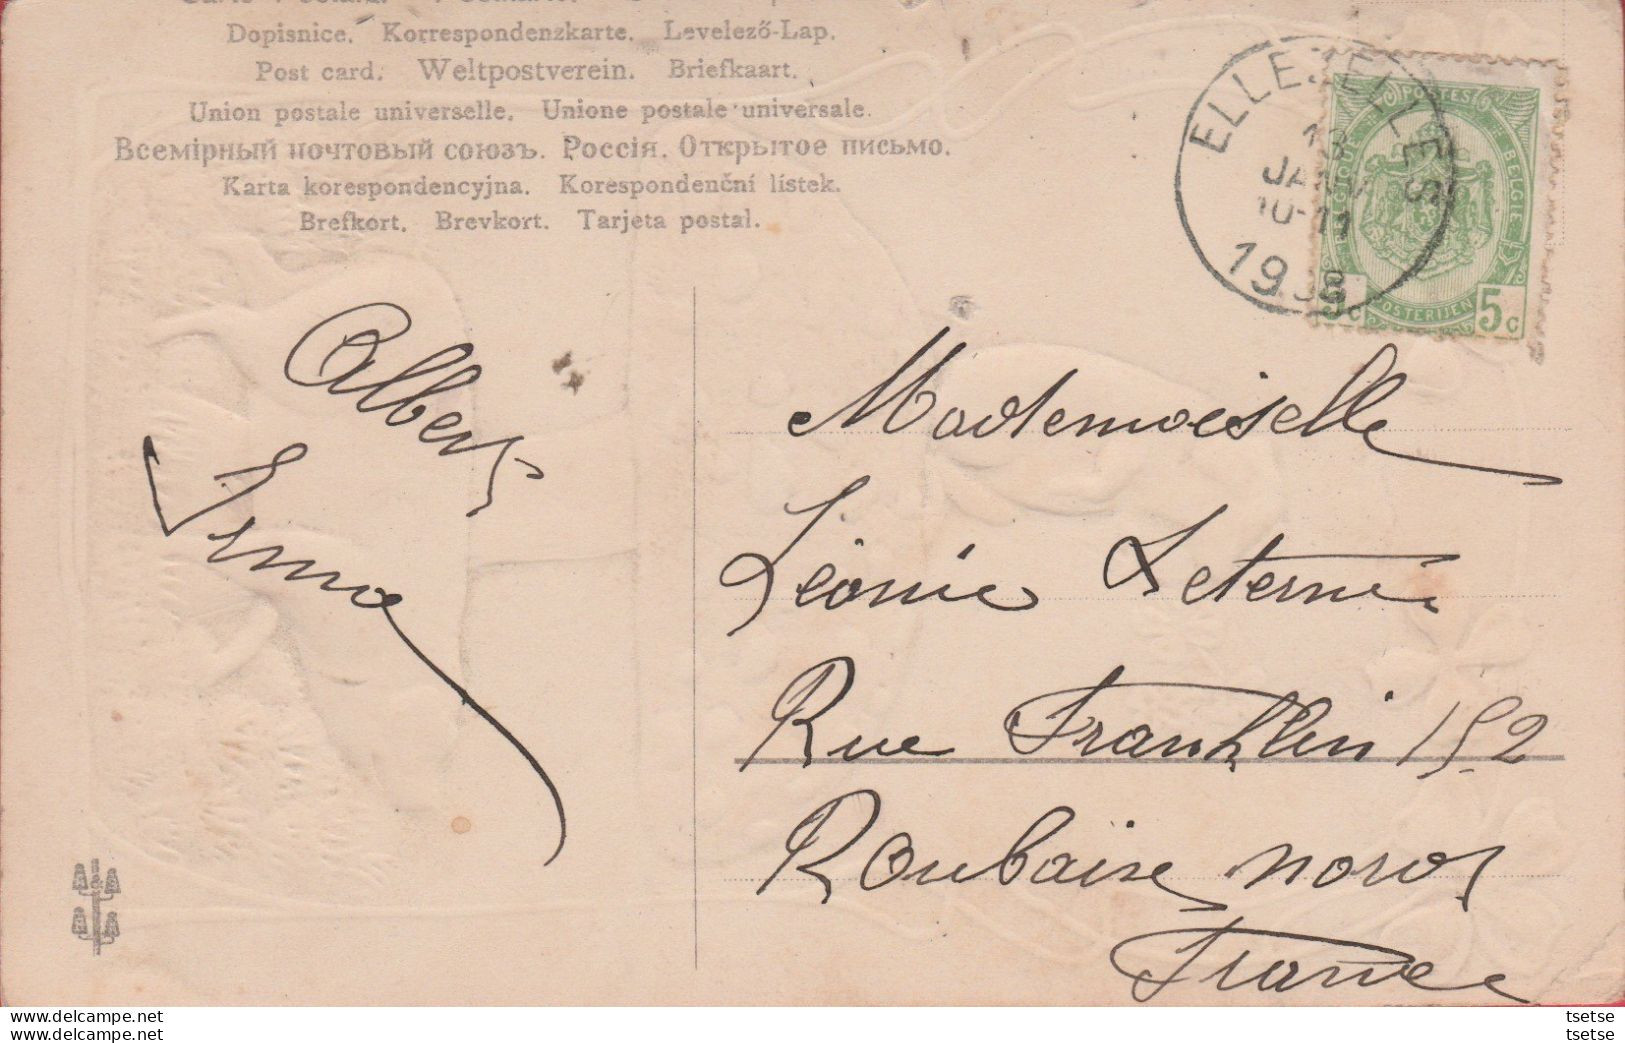 Dopisnice. Korrespondenzkarte. Levelező-Lap.
Post card. Weltpostverein. Briefkaart.
Union postale universelle. Unione postale universale.
Всемірный почтовый союзъ. Россія. Открытое письмо.
Karta korespondencyjna. Korespondenční lístek.
Brefkort. Brevkort. Tarjeta postal.
ELLEZELLES
13
JANV
10-11
POSTES
BELGIQUE BELGIE
5c POSTERIJEN 5c
Albert
Irma
Mademoiselle
Léonie Leterme
Rue Franklin 152
Roubaise nord
France
tsetse
tsetse